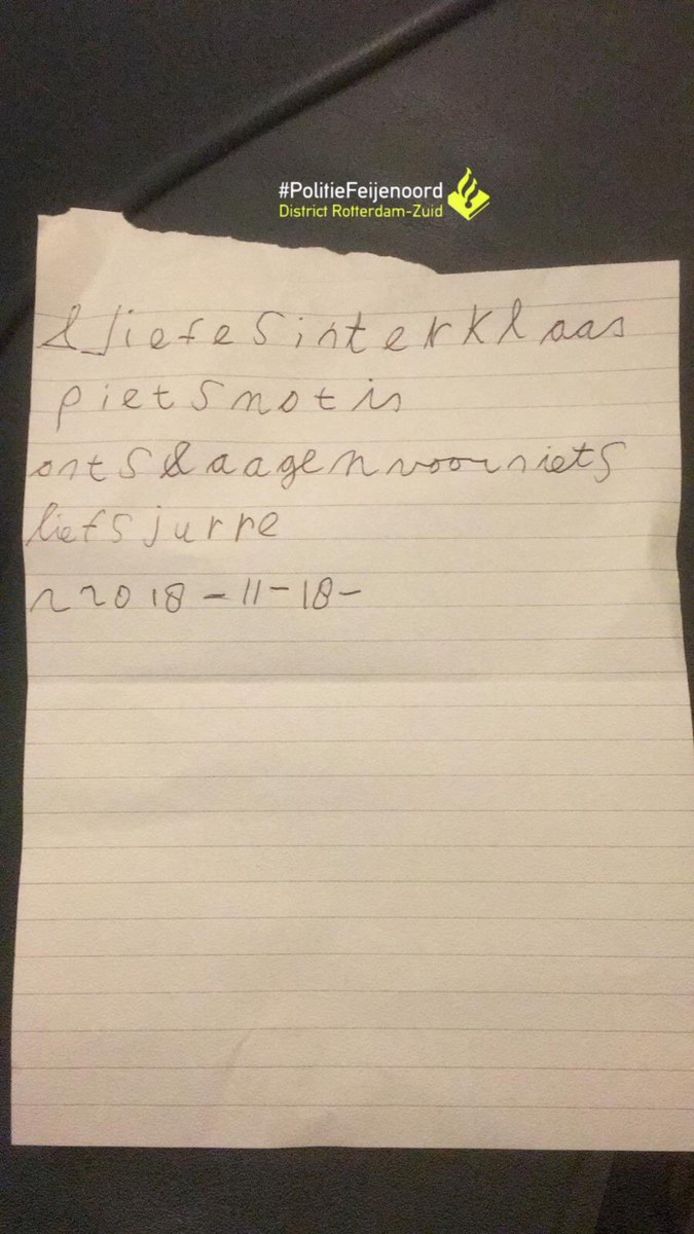 #PolitieFeijenoord
District Rotterdam-Zuid
liefe Sinterklaas
piet Snot is
ontslaagen voor niets
liefs jurre
2018-11-18-